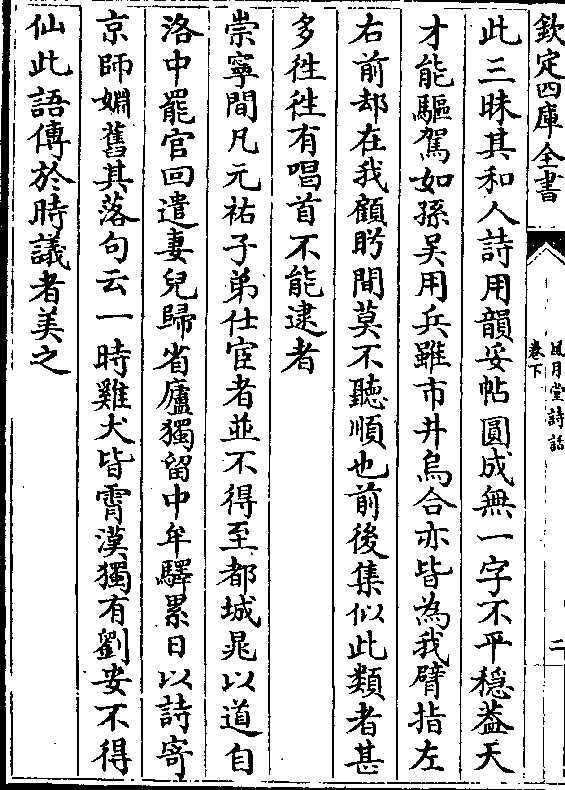 欽定四庫全書
風月堂詩話
卷下
二
此三昧其和人詩用韻妥帖圓成無一字不平穩葢天
才能驅駕如孫吳用兵雖市井烏合亦皆為我臂指左
右前却在我顧盻間莫不聽順也前後集似此類者甚
多徃徃有唱首不能逮者
崇寧間凡元祐子弟仕宦者並不得至都城晁以道自
洛中罷官回遣妻兒歸省廬獨留中牟驛累日以詩寄
京師姻舊其落句云一時雞犬皆霄漢獨有劉安不得
仙此語傳於時議者美之